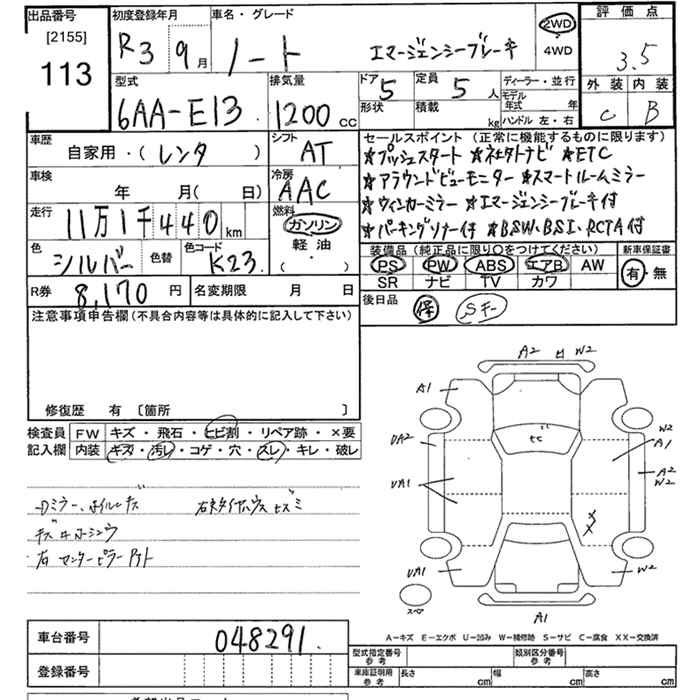 出品番号
[2155]
113
初度登録年月
R3 9月
車名・グレード
ノート エマージェンシーブレーキ
2WD
4WD
評価点
3.5
外装 内装
C B
型式
6AA-E13
排気量
1200 CC
ドア 5
定員 5 人
形状
積載 kg
ディーラー・並行
モデル年式 年
ハンドル 左・右
車歴
自家用・(レンタ )
シフト
AT
車検
年 月( 日)
冷房
AAC
走行
11万1千440 km
燃料
ガソリン
軽油
( ・ )
色
シルバー
色替
色コード
K23
R券 8,170 円
名変期限 月 日
セールスポイント(正常に機能するものに限ります)
★プッシュスタート ★ネックトナビ ★ETC
★アラウンドビューモニター ★スマートルームミラー
★ウィンカーミラー ★エマージェンシーブレーキ付
★パーキングソナー付 ★BSW、BSI、RCTA付
装備品(純正品に限り○をつけてください)
新車保証書
PS PW ABS エアB AW
SR ナビ TV カワ
有・無
後日品 保 Sキー
注意事項申告欄(不具合内容等は具体的に記入して下さい)
修復歴 有 〔箇所 〕
検査員記入欄
FW キズ・飛石・ヒビ割・リペア跡・×要
内装 キズ・汚レ・コゲ・穴・スレ・キレ・破レ
Dミラー、ホイルキズ
キズ
右 センターピラー
A2 W2
A1
UA2
UA1
UA1
W2
A1
A2
W2
W2
A1
スペア
A-キズ E-エクボ U-凹み W-補修跡 S-サビ C-腐食 XX-交換済
車台番号 048291
登録番号
型式指定番号 参考
類別区分番号 参考
車庫証明用 参考
長さ cm 幅 cm 高さ cm